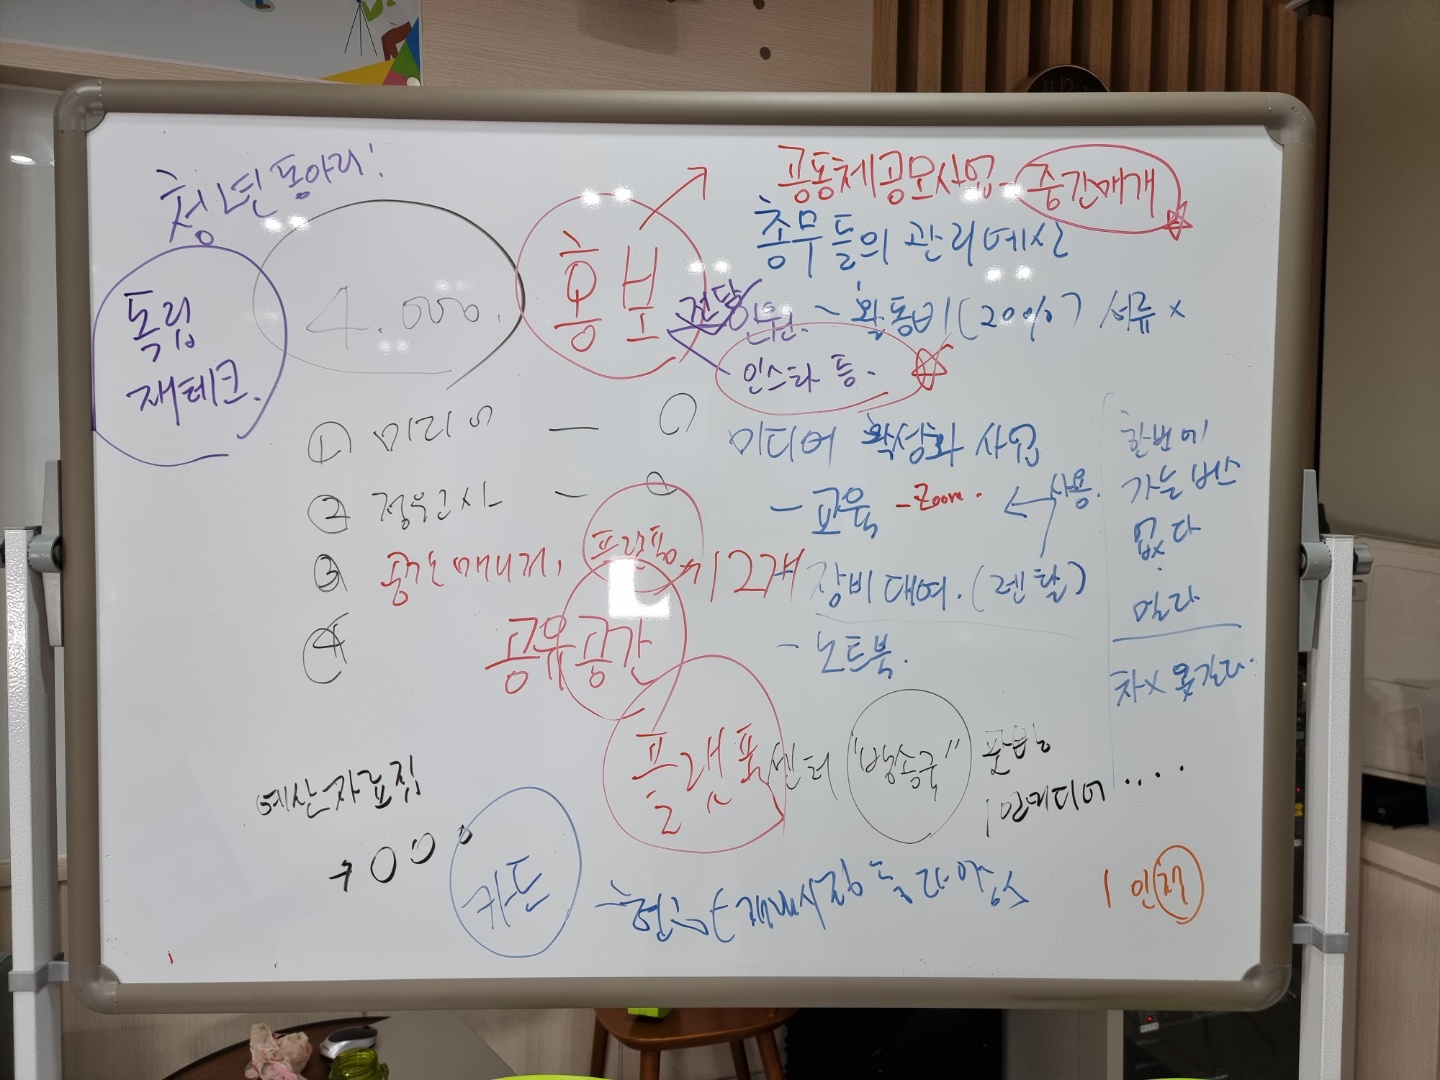 청년동아리!
독립
재테크.
4.000.
홍보
공동체공모사업 - 중간매개
총무들의 관리예산
전담인원. ~ 활동비(20%) 서류 x
인스타 등.
① 미디어 —
② 정우고사 —
③ 플랫폼 12개
④
공유공간
미디어 활성화 사업
- 교육 - Zoom.
← 사용.
장비 대여. (렌탈)
- 노트북.
한번에
가는 버스
없다
멀다
차x 못간다.
플랫폼 센터 "방송국"
1인미디어 ....
예산
카드
1 인